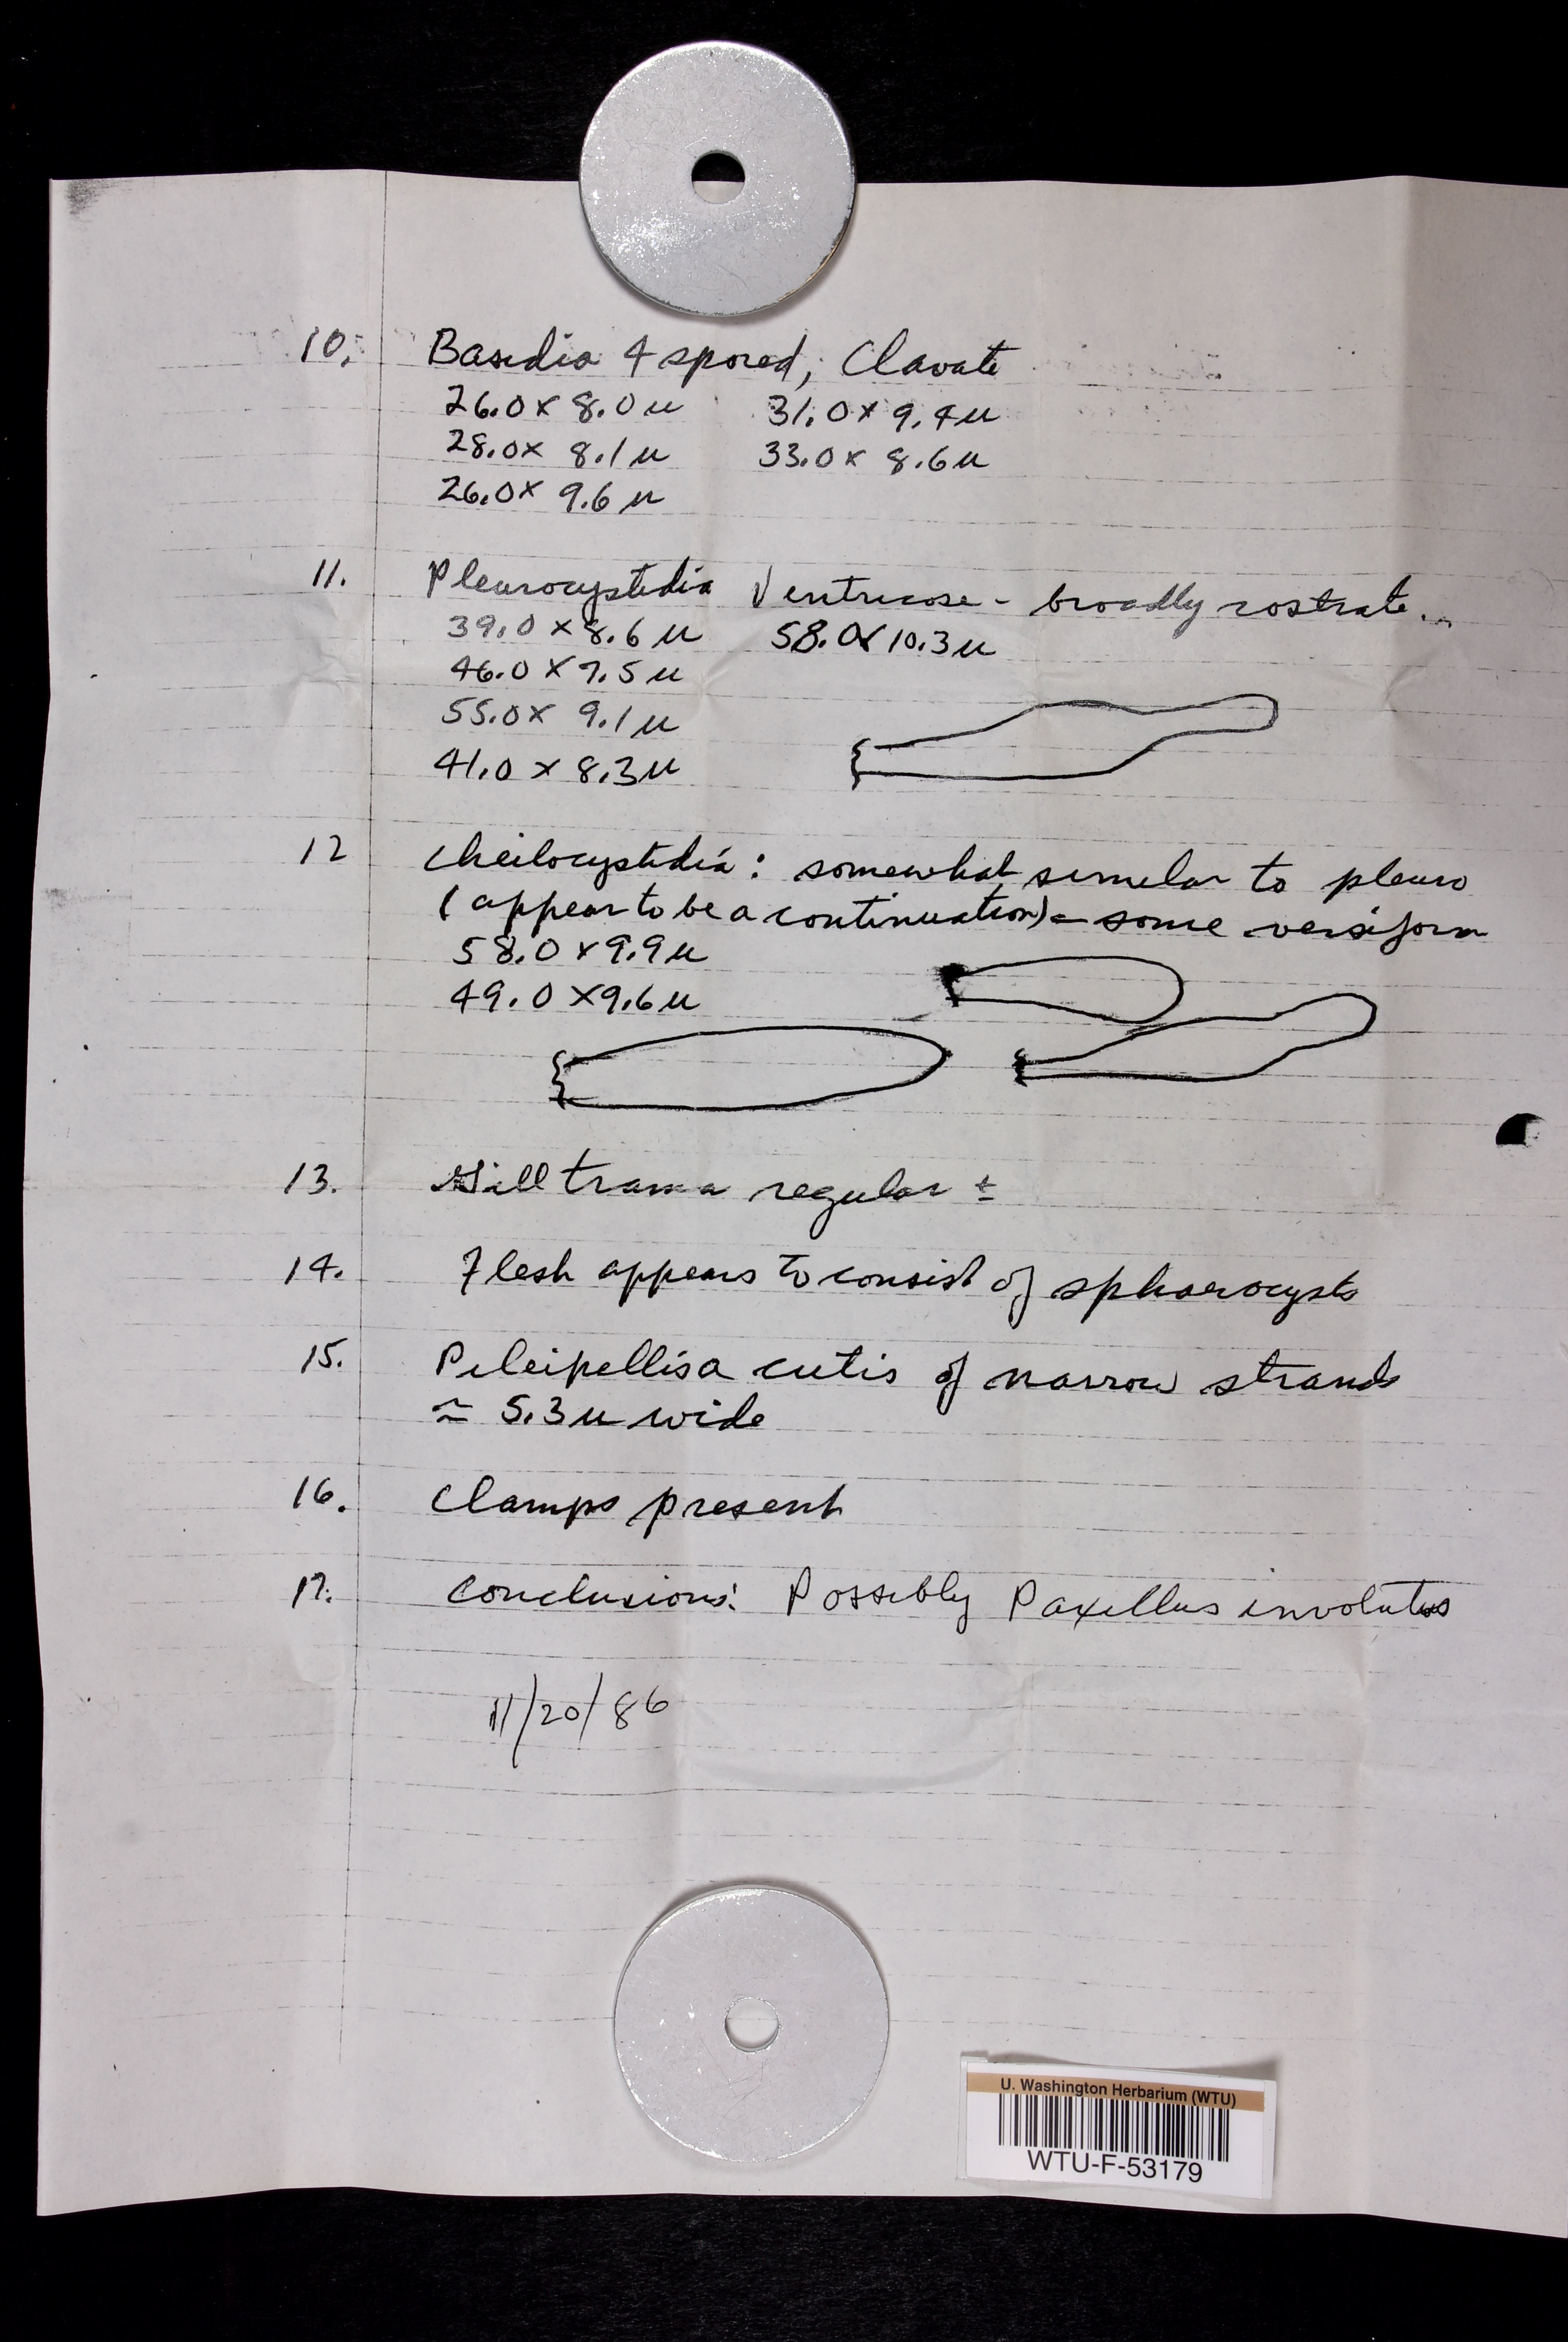 10. Basidia 4 spored; Clavate
26.0 x 8.0 u 31.0 x 9.4 u
28.0 x 8.1 u 33.0 x 8.6 u
26.0 x 9.6 u
11. Pleurocystidia Ventricose - broadly rostrate..
39.0 x 8.6 u 58.0 x 10.3 u
46.0 x 7.5 u
55.0 x 9.1 u
41.0 x 8.3 u
12 Cheilocystidia: somewhat similar to pleuro
(appear to be a continuation) - some versiform
58.0 x 9.9 u
49.0 x 9.6 u
13. Gill trama regular ±
14. Flesh appears to consist of sphaerocysts
15. Pileipellis a cutis of narrow strands
≃ 5.3 u wide
16. Clamps present
17. Conclusions: Possibly Paxillus involutus
11/20/86
U. Washington Herbarium (WTU)
WTU-F-53179